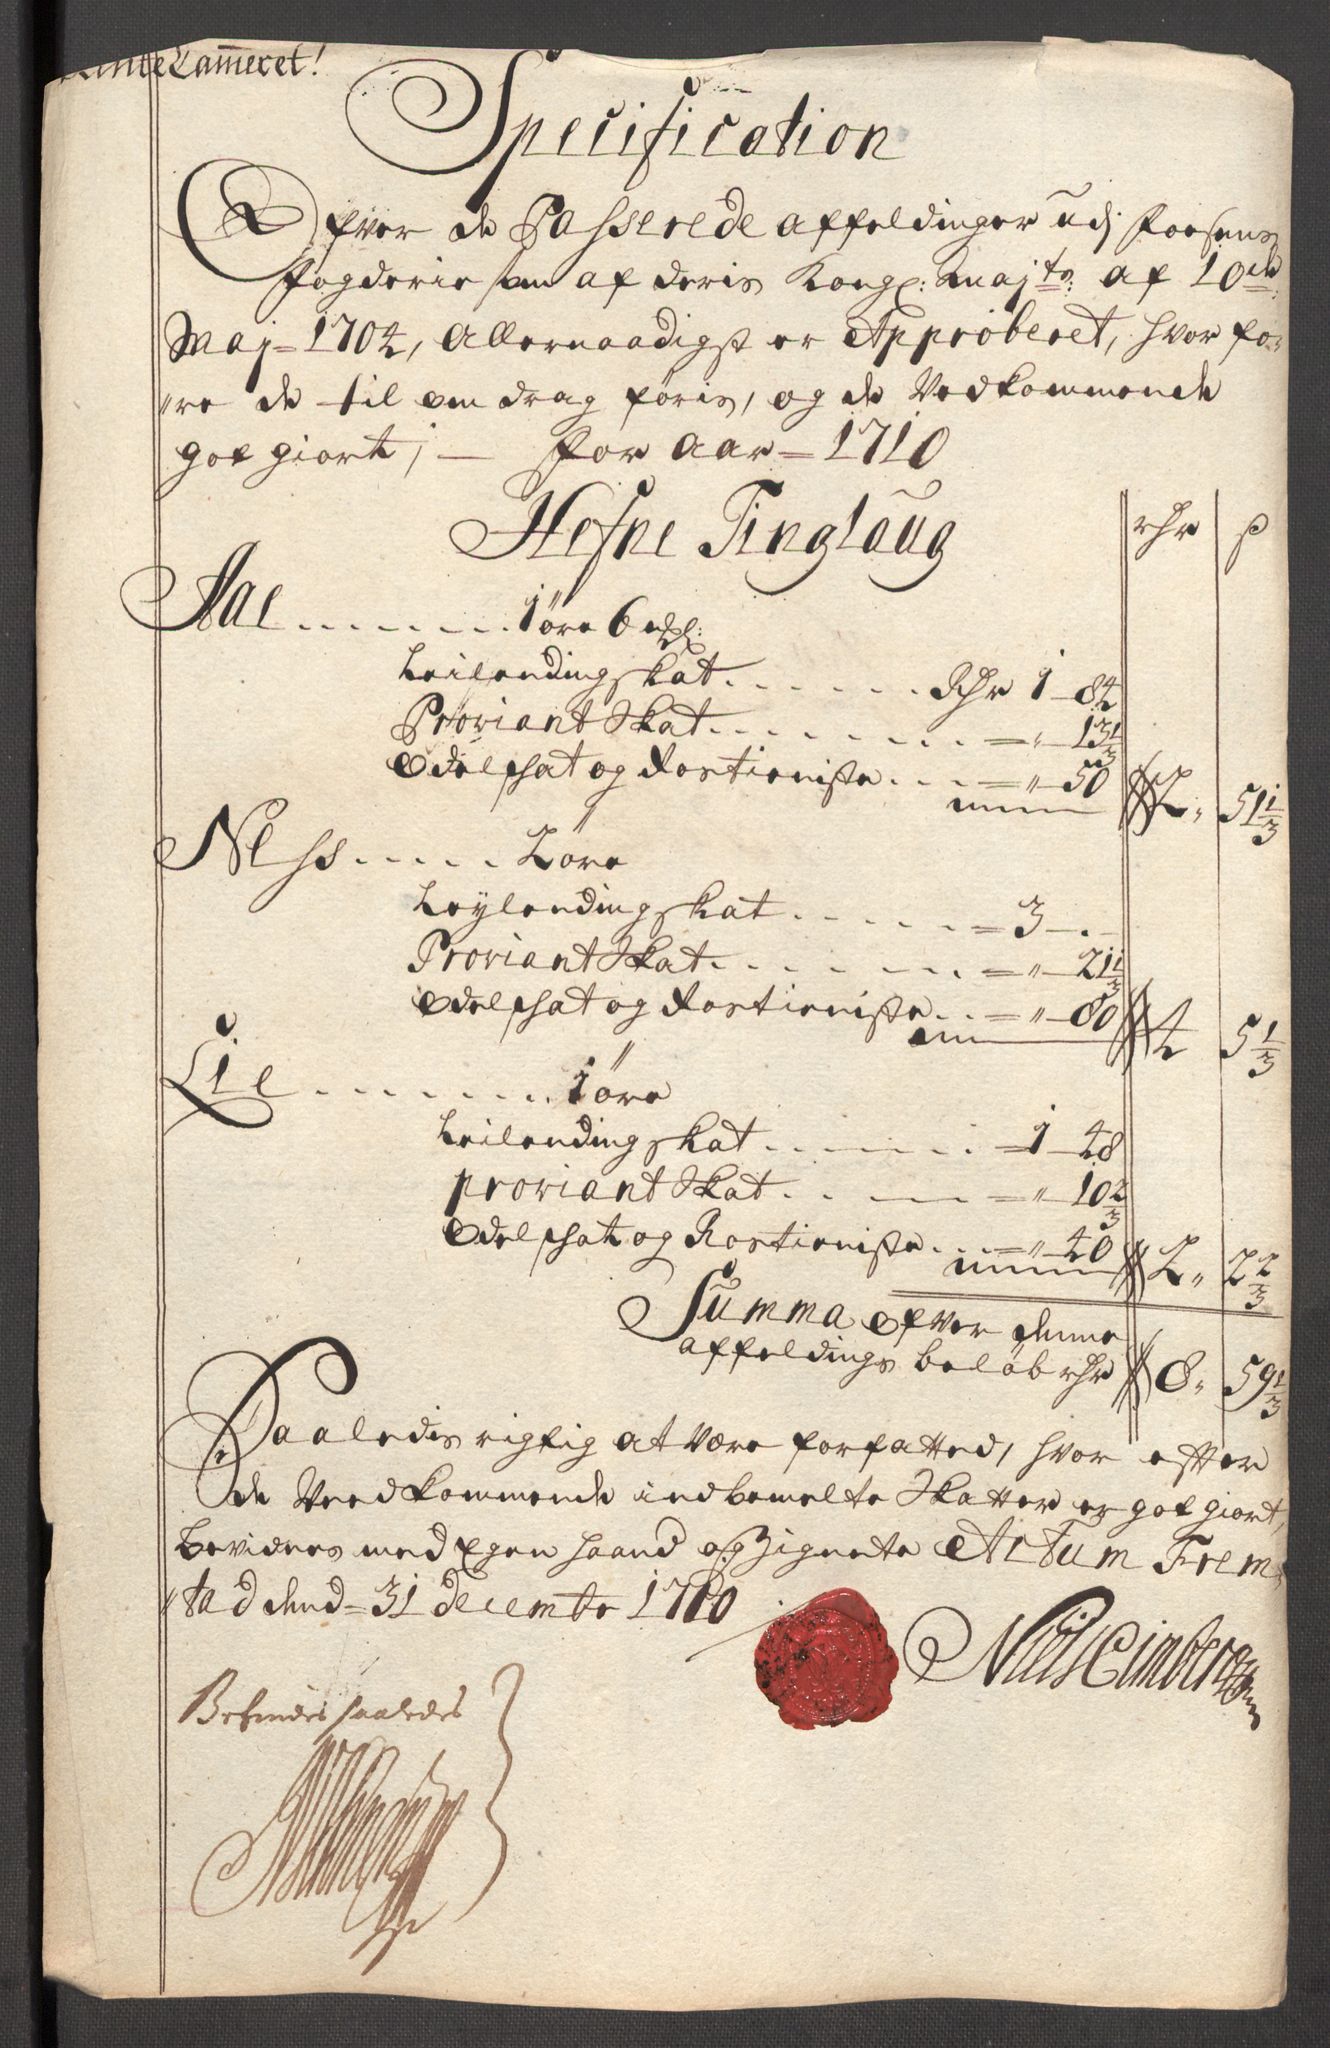 Rente Cammeret!
Specification
Ofver de Passerede affeldinger udj Foesens
fogderie som af deris Kongl: Majts: af 10de
Maj = 1704, Allernaadigst er Approberet, hvor fo-
"re de til omdrag føris, og de Vedkommende
got giort; — for Aar = 1710
Hefne Tinglaug rdr ß
Aae . . . . . . . 1 øre 6 mkl:
Leilendingskat . . . . . . . Rdr 1 - 84
Proviant Skat . . . . . . . . = " - 13 1/3
Odelshat og Rostieniste . . . . = " - 50 2 " 51 1/3
Ness . . . . . 2 øre
Leylendingskat . . . . . . = 3 - . -
Proviant Skat . . . . . . . = " - 21 1/3
Odelshat og Rostieniste . . . = " - 80 4 5 1/3
Lie . . . . . . . . 1 øre
Leilendingskat . . . . . . = 1 - 48
proviant Skat . . . = " - 10 2/3
Odelshat og Rostieniste . . . = " - 40 2 " 2 2/3
Summa ofver denne
affeldings beløb rdr 8 " 59 1/3
Saaledis rigtig at være forfatted, hvor efter
de Veedkommende indbemelte Skatter er got giort,
bevidnes med Egen haand og Zignete Actum Frem-
"stad dend = 31 decembr 1710
Niels Cimberg
Befindes saaledes